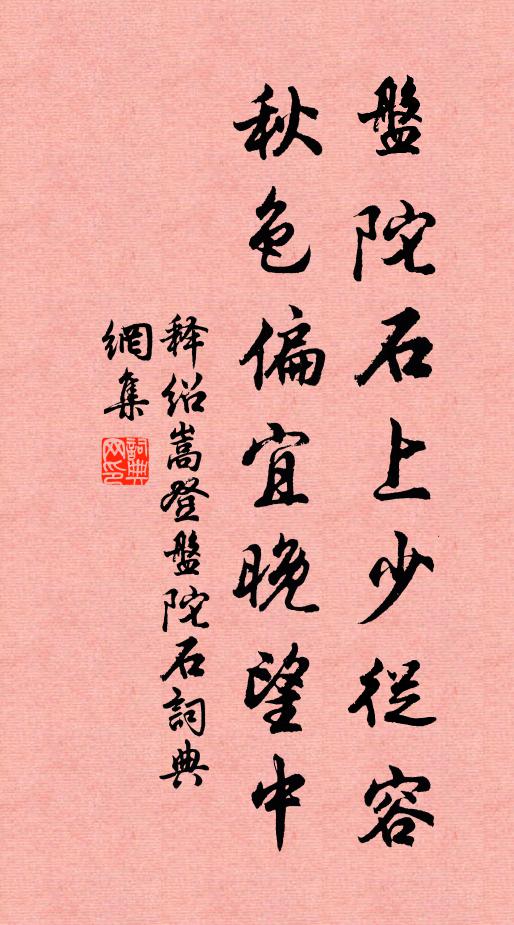 盤陀石上少從容
秋色偏宜晚望中
释绍嵩登盤陀石詞典
網集
詞典網印